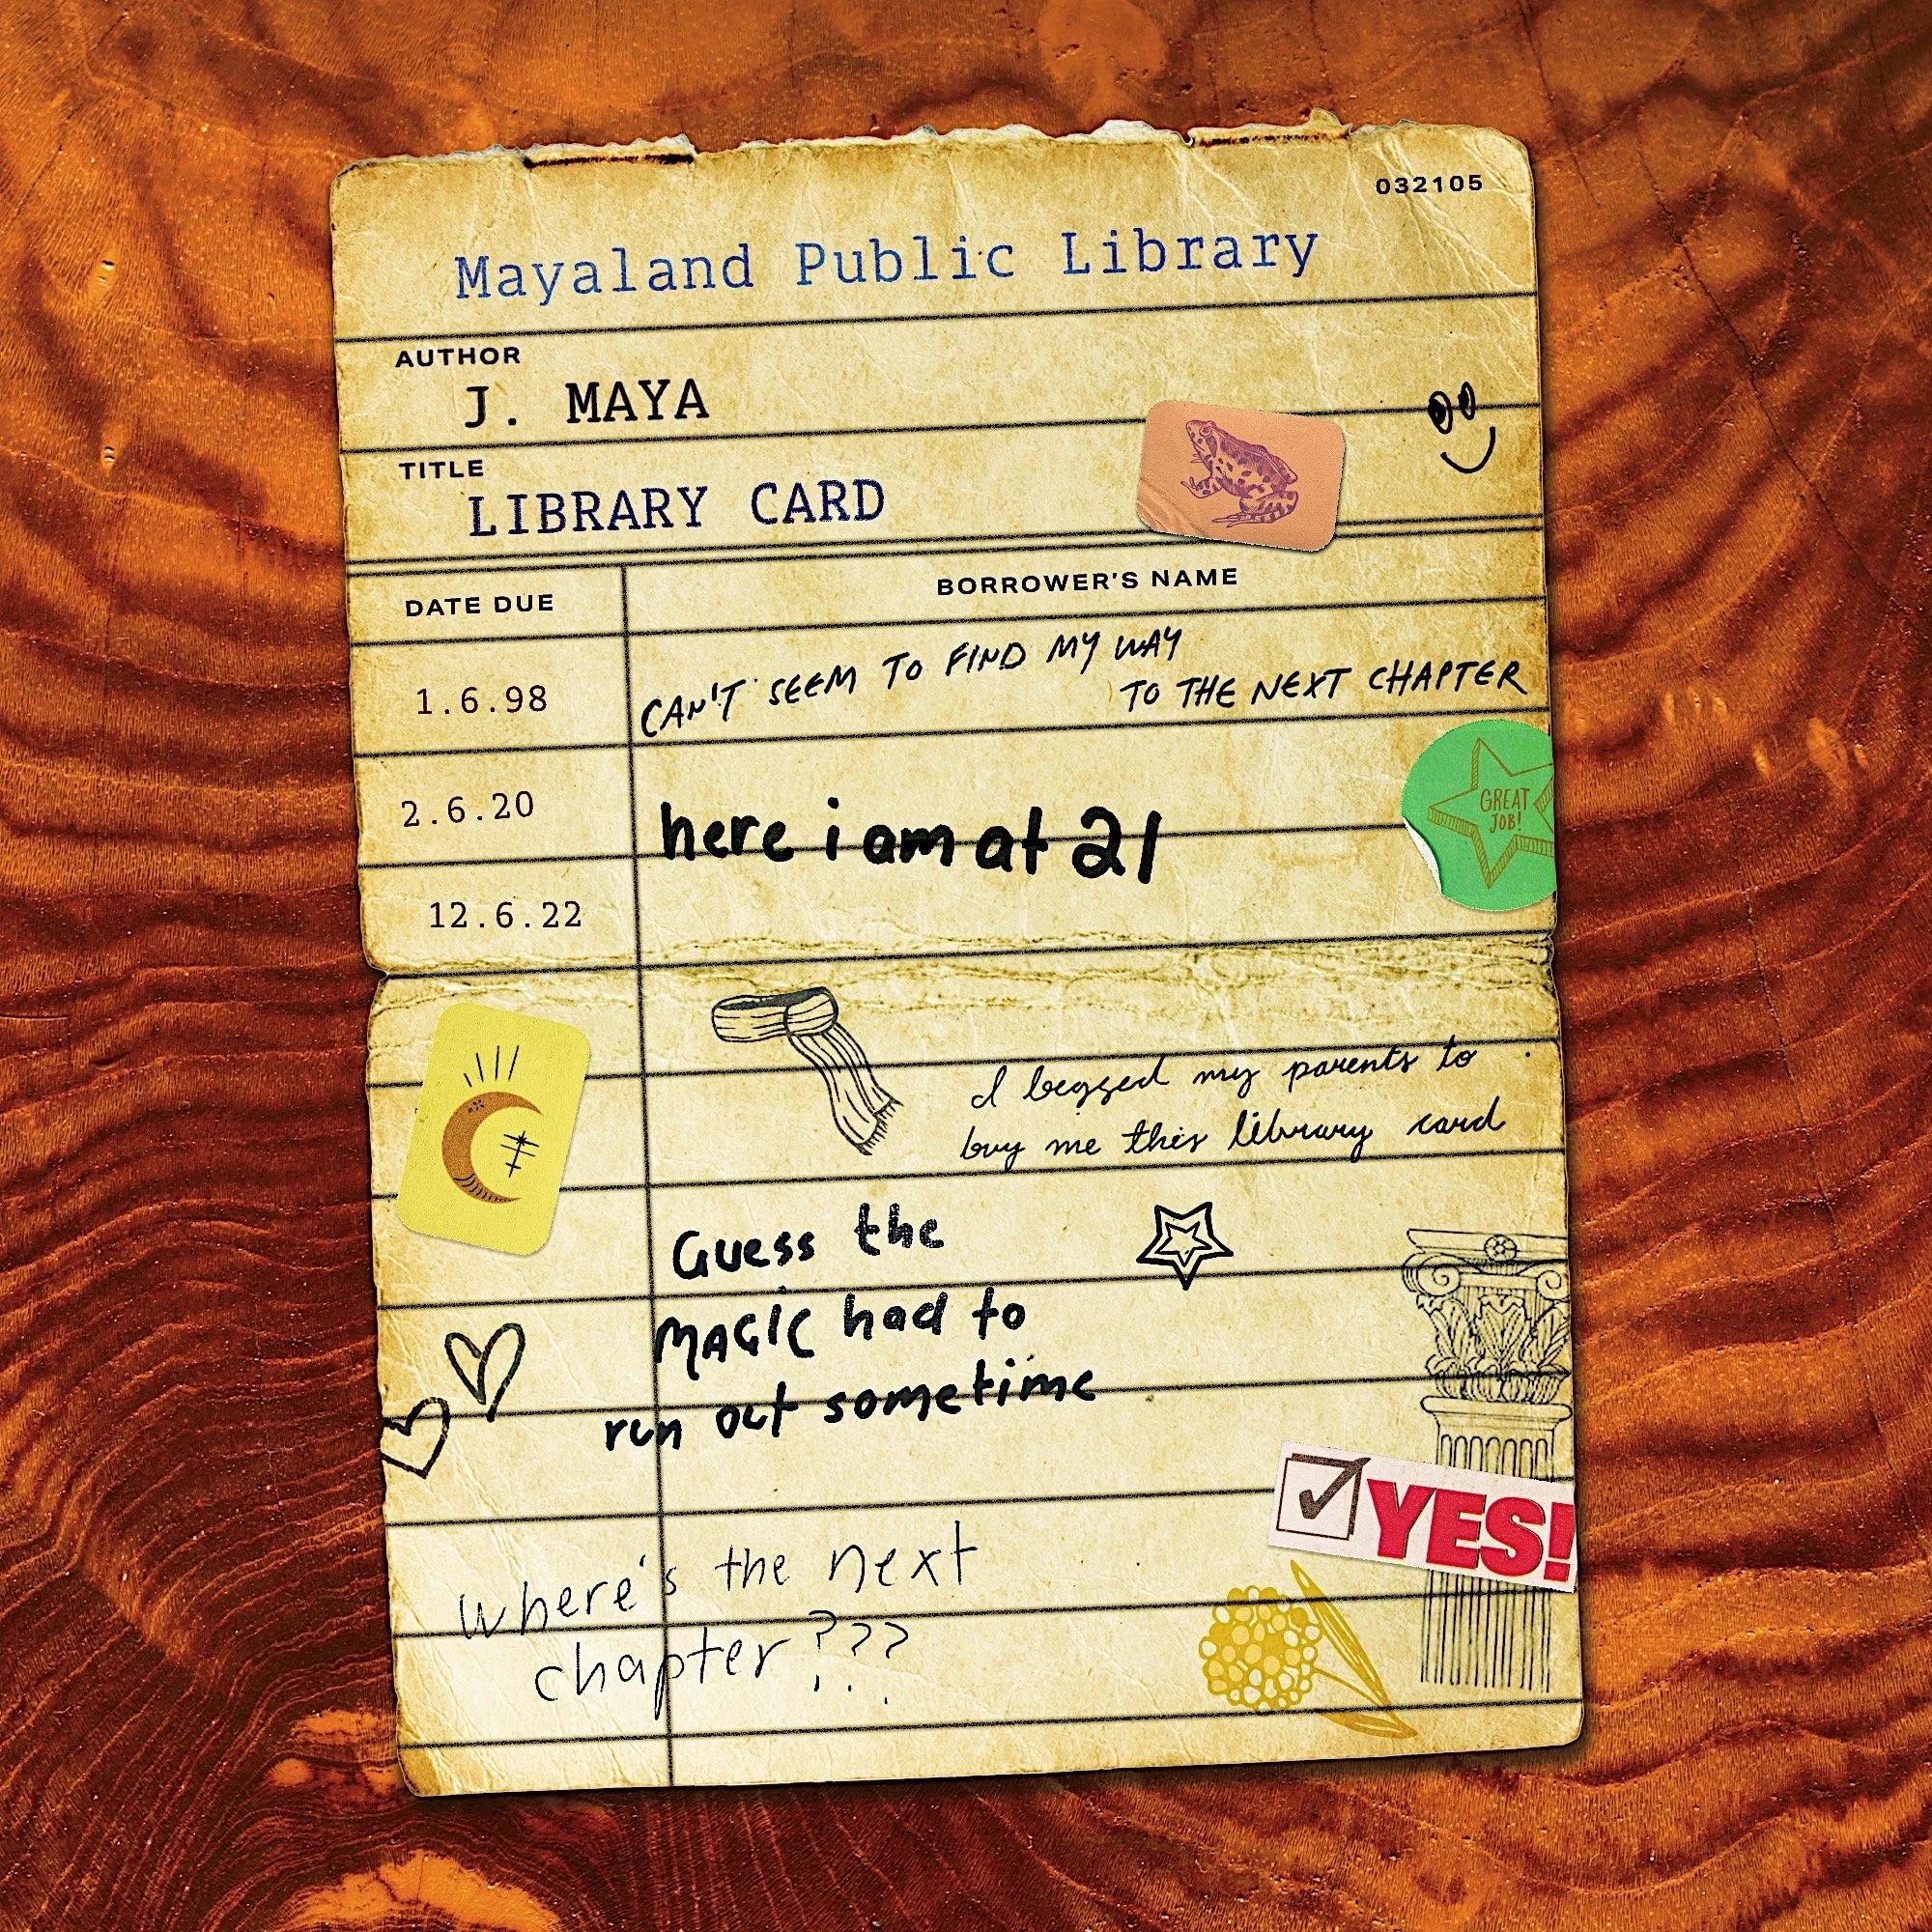 032105
Mayaland Public Library
AUTHOR
J. MAYA
TITLE
LIBRARY CARD
DATE DUE
BORROWER'S NAME
1.6.98
CAN'T SEEM TO FIND MY WAY
TO THE NEXT CHAPTER
2.6.20
here i am at 21
GREAT
JOB!
12.6.22
I begged my parents to
buy me this library card
Guess the
MAGIC had to
run out sometime
YES!
where's the next
chapter???